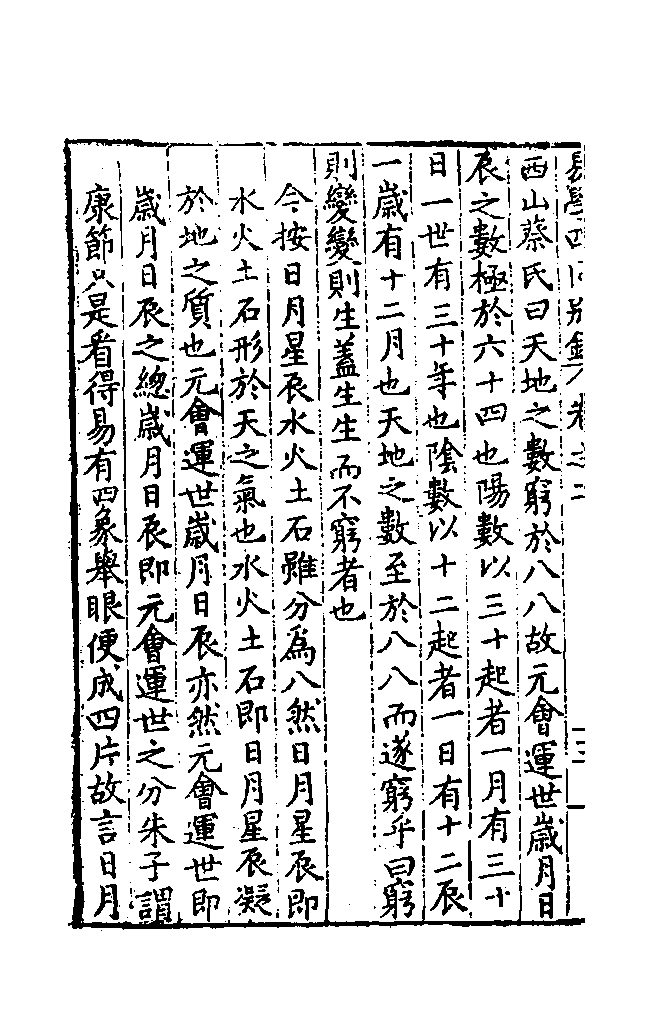 易學四同別錄卷之二
西山蔡氏曰天地之數窮於八八故元會運世歲月日
辰之數極於六十四也陽數以三十起者一月有三十
日一世有三十年也陰數以十二起者一日有十二辰
一歲有十二月也天地之數至於八八而遂窮乎曰窮
則變變則生蓋生生而不窮者也
今按日月星辰水火土石雖分為八然日月星辰即
水火土石形於天之氣也水火土石即日月星辰凝
於地之質也元會運世歲月日辰亦然元會運世即
歲月日辰之總歲月日辰即元會運世之分朱子謂
康節只是看得易有四象舉眼便成四片故言日月